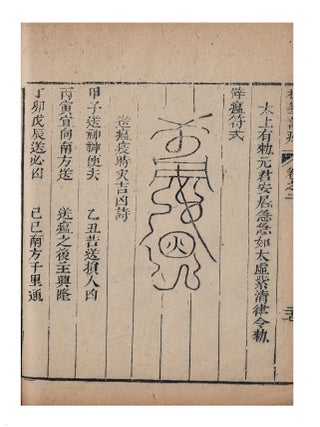 太上有勅元君安居急急如太虛紫清律令勅
符式
送瘟疫時灾吉凶詩
甲子送神神便去 乙丑若送損人凶
丙寅宜向南方送 送瘟之後主興隆
丁卯戊辰送必凶 己巳南方千里通